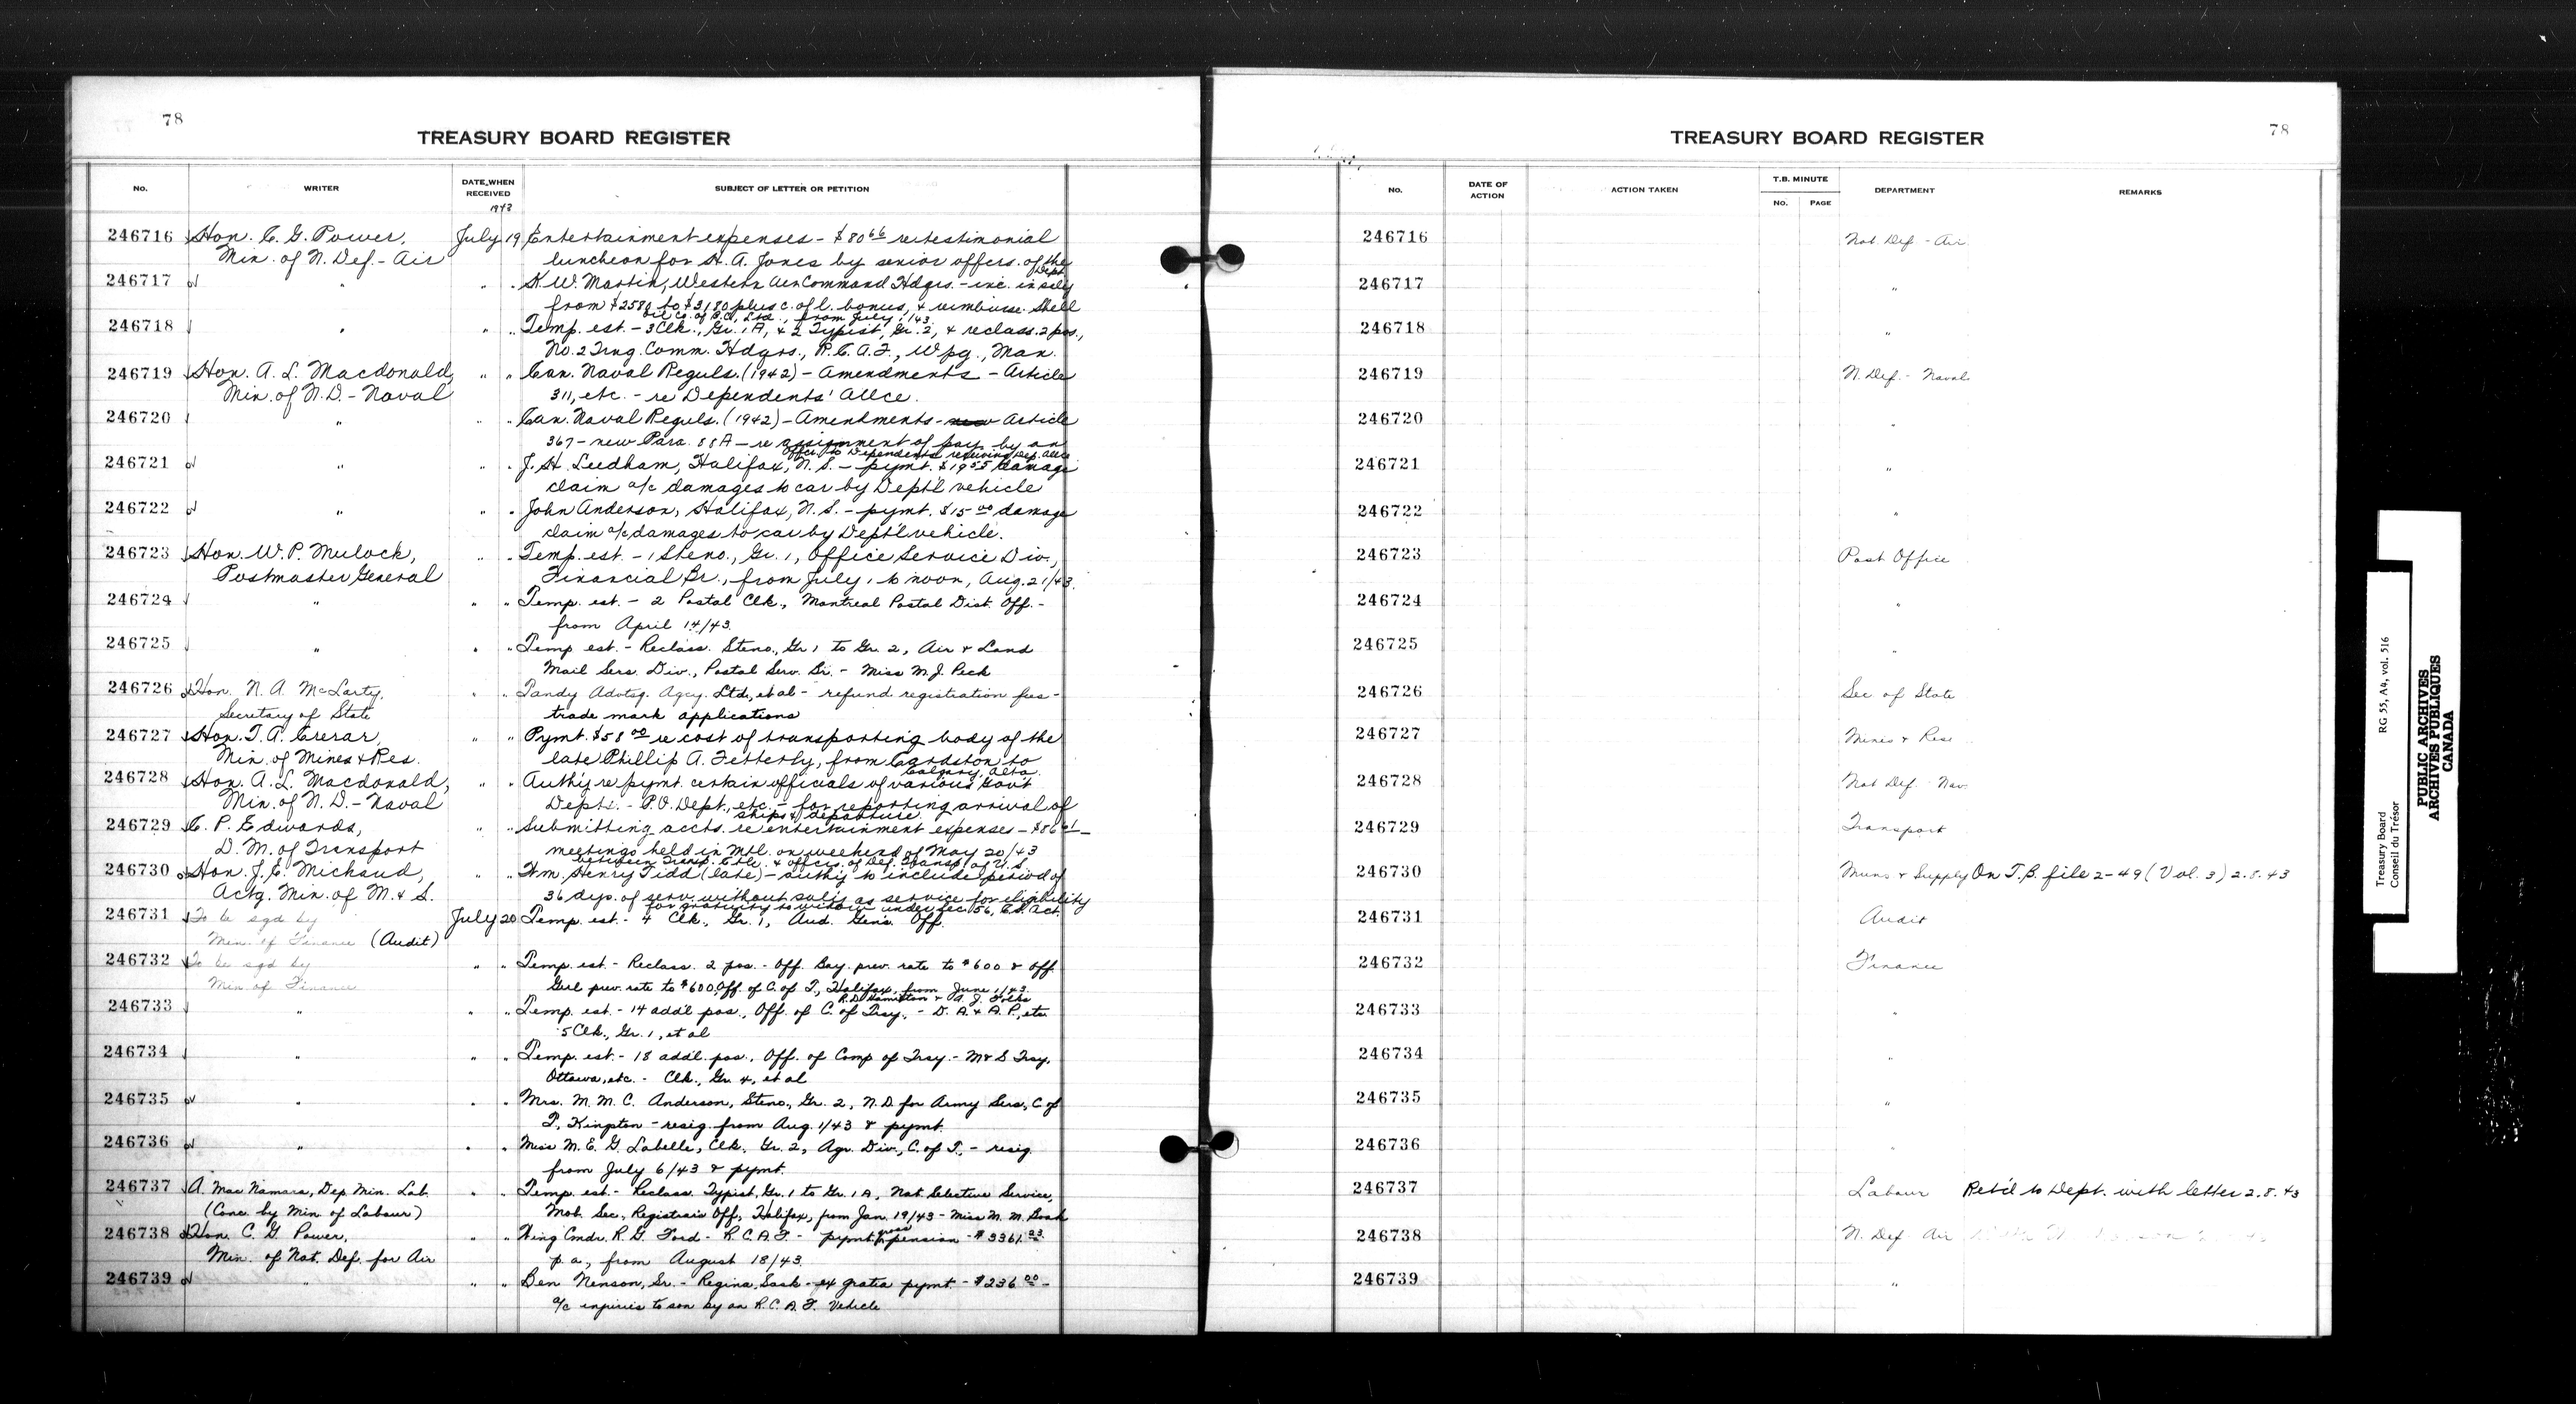 78
TREASURY BOARD REGISTER
No. WRITER DATE WHEN RECEIVED SUBJECT OF LETTER OR PETITION
1943
246716 Hon. C. G. Power, July 19 Entertainment expenses - $80.66 re testimonial
Min. of N. Def. - Air luncheon for H. A. Jones by senior offers. of the Dept.
246717 " " " K. W. Martin, Western Air Command Hdqrs. - inc. in sály
from $2580 to $3180 plus c. of l. bonus, & reimburse Shell
Oil Co. of B.C., Ltd., from July 1/43.
246718 " " " Temp. est. - 3 Clk., Gr. 1A, & 2 Typist, Gr. 2, & reclass. 2 pos.,
No. 2 Trng. Comm. Hdqrs., R.C.A.F., Wpg., Man.
246719 Hon. A. L. Macdonald, " " Can. Naval Reguls. (1942) - Amendments - Article
Min. of N.D. - Naval 311, etc. - re Dependents' Allce.
246720 " " " Can. Naval Reguls. (1942) - Amendments - new Article
367 - new Para. 88A - re assignment of pay by an
Offcr. to Dependents receiving Dep. Allce
246721 " " " J. H. Leedham, Halifax, N.S. - pymt. $19.55 damage
claim a/c damages to car by Dept'l vehicle
246722 " " " John Anderson, Halifax, N.S. - pymt. $15.00 damage
claim a/c damages to car by Dept'l vehicle.
246723 Hon. W. P. Mulock, " " Temp. est. - 1 Steno., Gr. 1, Office Service Div.,
Postmaster General Financial Br., from July 1 to noon, Aug. 21/43.
246724 " " " Temp. est. - 2 Postal Clk., Montreal Postal Dist. Off. -
from April 14/43.
246725 " " " Temp est. - Reclass. Steno., Gr 1 to Gr. 2, Air & Land
Mail Serv. Div., Postal Serv. Br. - Miss M. J. Peck
246726 Hon. N. A. McLarty, " " Tandy Advtsg. Agcy. Ltd., et al - refund registration fees -
Secretary of State trade mark applications
246727 Hon. T. A. Crerar, " " Pymt. $58.00 re cost of transporting body of the
Min. of Mines & Res. late Phillip A. Fetterly, from Cardston to
Calgary, Alta.
246728 Hon. A. L. Macdonald, " " Auth'y re pymt. certain officials of various Govt
Min. of N.D. - Naval Depts. - P.O. Dept., etc. - for reporting arrival of
ships & departure.
246729 C. P. Edwards, " " Submitting accts. re entertainment expenses -
D. M. of Transport meetings held in Mtl. on weekend of May 20/43
between Transp. Ctlr. & offcrs. of Def. Transp. of U.S.
246730 Hon. J. E. Michaud, " " Wm. Henry Tidd (late) - auth'y to include period of
Actg. Min. of M. & S. 36 dys. of serv. without sal'y as service for eligibility
for gratuity to widow under Sec. 56, C.S. Act.
246731 To be sgd by July 20 Temp. est. - 4 Clk., Gr. 1, Aud. Gen's. Off.
Min. of Finance (Audit)
246732 To be sgd by " " Temp. est. - Reclass. 2 pos. - Off. Boy. prev. rate to $600 & Off.
Min. of Finance Girl prev. rate to $600, Off. of C. of T., Halifax, from June 1/43.
R. D. Hamilton & A. J.
246733 " " " Temp. est. - 14 add'l pos., Off. of C. of Tresy. - D. A. & A. P., etc.
5 Clk., Gr. 1, et al
246734 " " " Temp. est. - 18 add'l. pos., Off. of Comp of Tresy. - M & S Tresy.
Ottawa, etc. - Clk., Gr. 4, et al
246735 " " " Mrs. M. M. C. Anderson, Steno., Gr. 2, N.D. for Army Serv., C of
T., Kingston - resig. from Aug. 1/43 & pymt.
246736 " " " Miss M. E. G. Labelle, Clk., Gr. 2, Agr. Div., C. of T. - resig.
from July 6/43 & pymt.
246737 A. MacNamara, Dep. Min. Lab. " " Temp. est. - Reclass. Typist, Gr. 1 to Gr. 1A, Nat. Selective Service,
(Conc. by Min. of Labour) Mob. Sec., Registrar's Off., Halifax, from Jan. 19/43 - Miss M. M.
246738 Hon. C. G. Power, " " Wing Cmdr. R. G. Ford - R.C.A.F. - pymt. pension - $3361.
Min. of Nat. Def. for Air p.a., from August 18/43.
246739 " " " Ben Nenson, Sr. - Regina, Sask - ex gratia pymt - $236.00 -
a/c injuries to son by an R.C.A.F. Vehicle
78
TREASURY BOARD REGISTER
No. DATE OF ACTION ACTION TAKEN T.B. MINUTE No. PAGE DEPARTMENT REMARKS
246716 Nat Def - Air
246717 "
246718 "
246719 N. Def. - Naval
246720 "
246721 "
246722 "
246723 Post Office
246724 "
246725 "
246726 Sec of State
246727 Mines & Res
246728 Nat Def - Nav.
246729 Transport
246730 Muns & Supply On T.B. file 2-49 (Vol. 3) 2.8.43
246731 Audit
246732 Finance
246733 "
246734 "
246735 "
246736 "
246737 Labour Ret'd to Dept. with letter 2.8.43
246738 N. Def Air
246739 "
Treasury Board RG 55, A4, vol. 516
Conseil du Trésor
PUBLIC ARCHIVES
ARCHIVES PUBLIQUES
CANADA